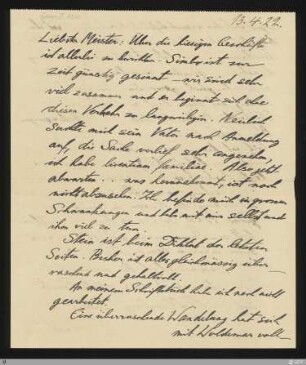 13.4.22.
Liebster Meister: Über die hiesigen Geschäfte
ist allerlei zu berichten. Simbu ist zur
Zeit günstig gesinnt – wir sind sehr
viel zusammen und es beginnt sich
dieser Verkehr zu Neulich
Suchte mich sein Vater nach Anmeldung
auf, die Sache verlief sehr angenehm,
ich habe Also jetzt
abwarten . was herauskommt, ist noch
nicht abzusehen. Ich befinde mich in grossen
Schwankungen und habe mit mir selbst und
ihm viel zu tun.
Stein ist beim Diktat der letzten
Seiten. Bisher ist alles gleichmässig über-
raschend und gehaltvoll.
An meinem habe ich noch nicht
gearbeitet.
Eine überraschende Wandlung hat sich
mit Woldemar voll-